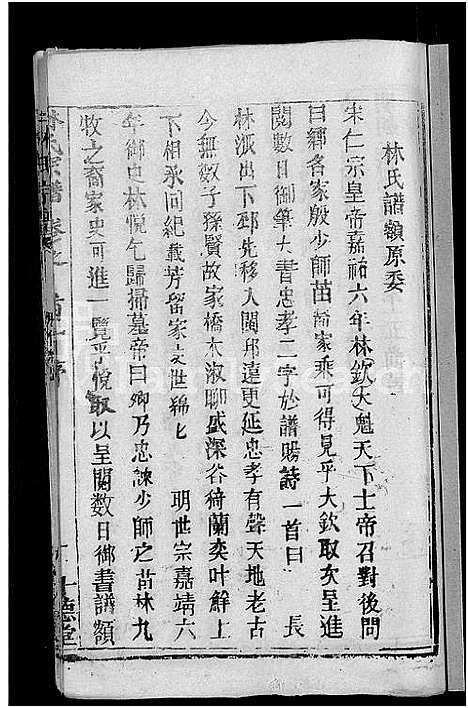 林氏譜額原委
宋仁宗皇帝嘉祐六年林欽大魁天下士帝召對後問
曰鄉各家殷少師苗裔家乘可得見乎大欽取次呈進
閱數日御筆大書忠孝二字於譜賜詩一首曰　長
林派出下邳先移入閩邦遠更延忠孝有聲天地老古
今無數子孫賢故家橋木淑聊盛深谷猗蘭奕叶鮮上
下相承同紀載芳留家乂世綿匕　明世宗嘉靖六
年御史林悅乞歸掃墓帝曰卿乃忠諫少師之苗林九
牧之裔家史可進一覽乎悅取以呈閱數日御書譜額
林氏宗譜